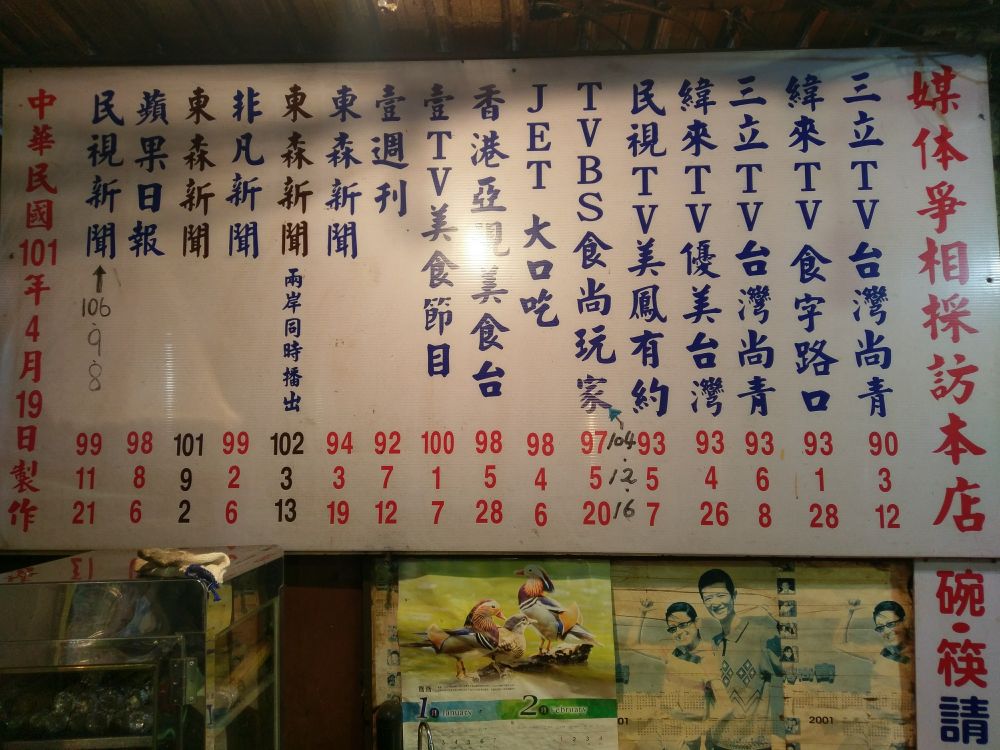 媒体爭相採訪本店
三立TV台灣尚青 90 3 12
緯來TV食字路口 93 1 28
三立TV台灣尚青 93 6 8
緯來TV優美台灣 93 4 26
民視TV美鳳有約 93 5 7
TVBS食尚玩家 97 5 20
104.12.16
JET 大口吃 98 4 6
香港亞視美食台 98 5 28
壹TV美食節目 100 1 7
壹週刊 92 7 12
東森新聞 94 3 19
東森新聞 兩岸同時播出 102 3 13
非凡新聞 99 2 6
東森新聞 101 9 2
蘋果日報 98 8 6
民視新聞 99 11 21
106.9.8
中華民國101年4月19日製作
碗·筷請
1月 January
2月 February
2001